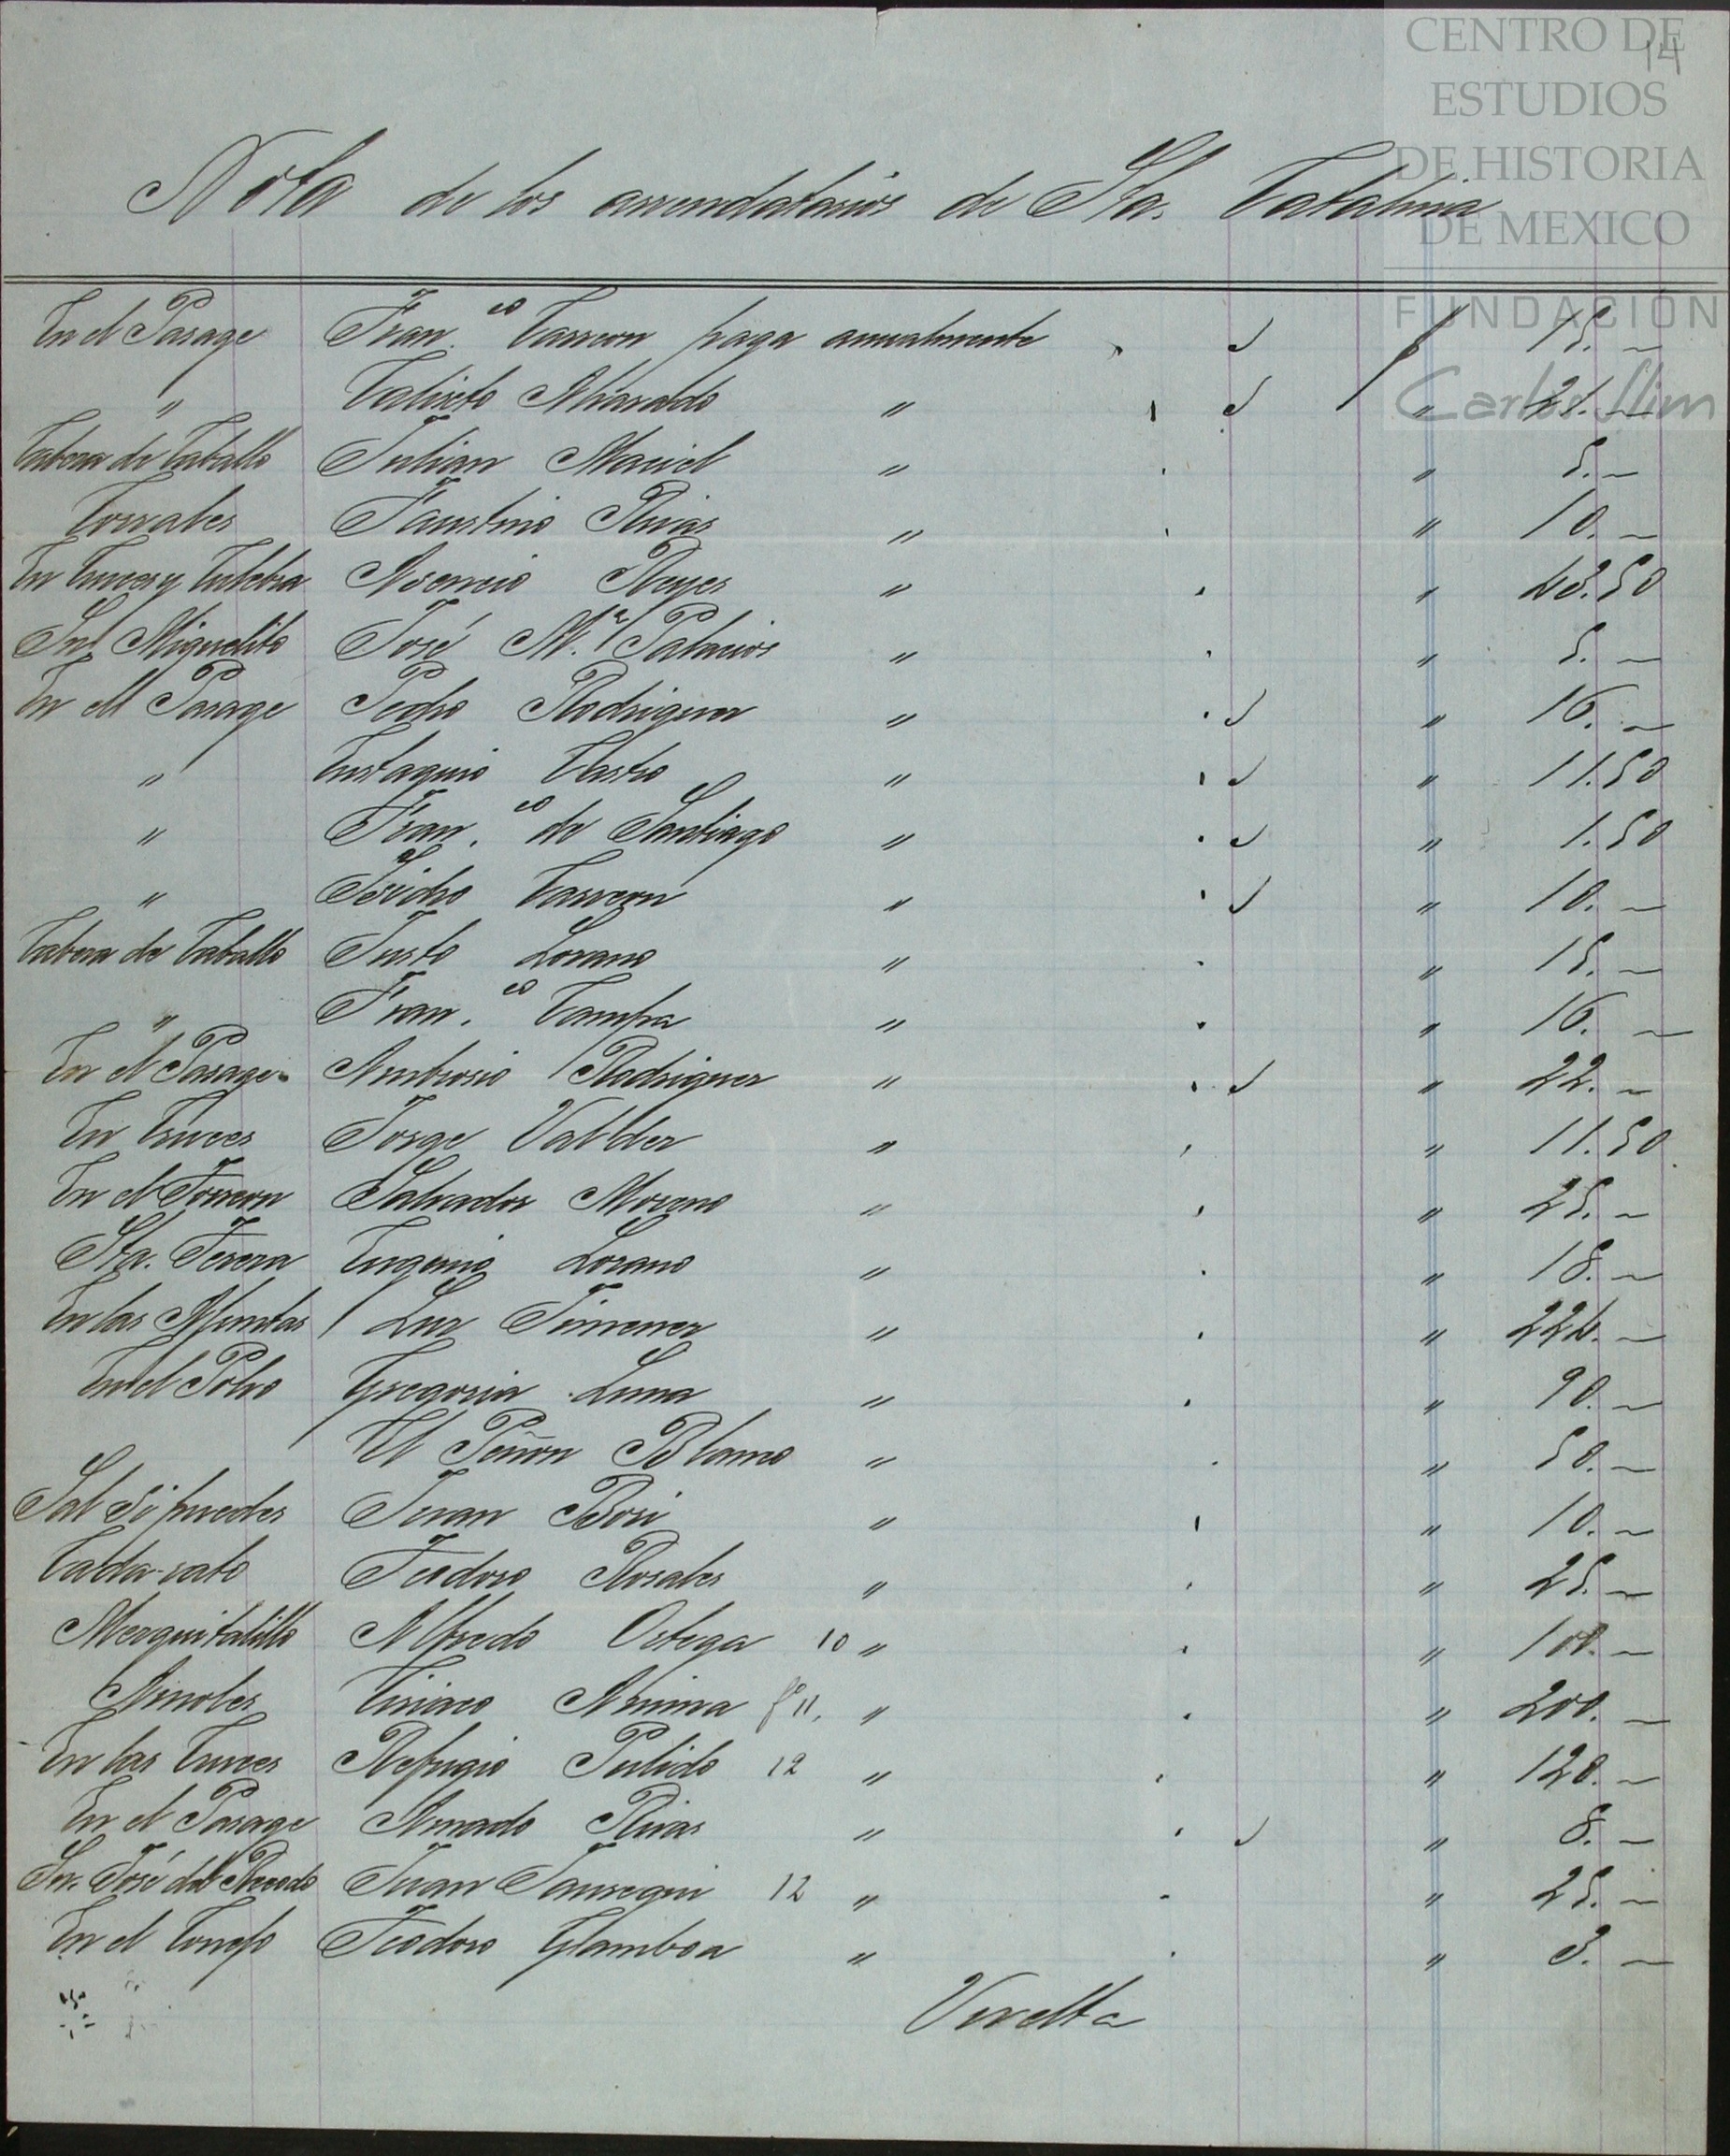 CENTRO DE
ESTUDIOS
DE HISTORIA
DE MEXICO
FUNDACIÓN
Carlos Slim
14
Nota de los arrendatarios de Sta. Catalina
En el Pasage Fran.co Carreon paga annalmente $ 15. —
" Calisto Alvarado " " 21. —
Cabeza de Caballo Julian Maciel " " 5. —
Corrales Faustino Rivas " " 10. —
En Cruces y Culebra Asencio Reyes " " 43.50
Sn. Miguelito José M.a Palacios " " 5. —
En el Pasage Pedro Rodriguez " " 16. —
" Eustaquio Castro " " 11.50
" Fran.co de Santiago " " 1.50
" Isidro Carreon " " 10. —
Cabeza de Caballo Justo Lozano " " 15. —
" Fran.co Campa " " 16. —
En el Pasage Ambrosio Rodriguez " " 22. —
En Cruces Jorge Valdez " " 11.50
En el Torreon Salvador Moreno " " 25. —
Sta. Teresa Eugenio Lozano " " 18. —
En las Luz Jimenez " " 224. —
En el Polvo Gregoria Luna " " 90. —
El Peñon Blanco " " 50. —
Sal si puedes Juan " " 10. —
Cada-rato Teodoro Rosales " " 25. —
Mezquitalillo Alfredo Ortega 10 " " 100. —
Ciriaco 11. " " 200. —
En las Cruces Refugio Pulido 12 " " 120. —
En el Pasage Amado Rivas " " 8. —
Sn. José del Juan Jauregui 12 " " 25. —
En el Teodoro Gamboa " " 3. —
Vuelta